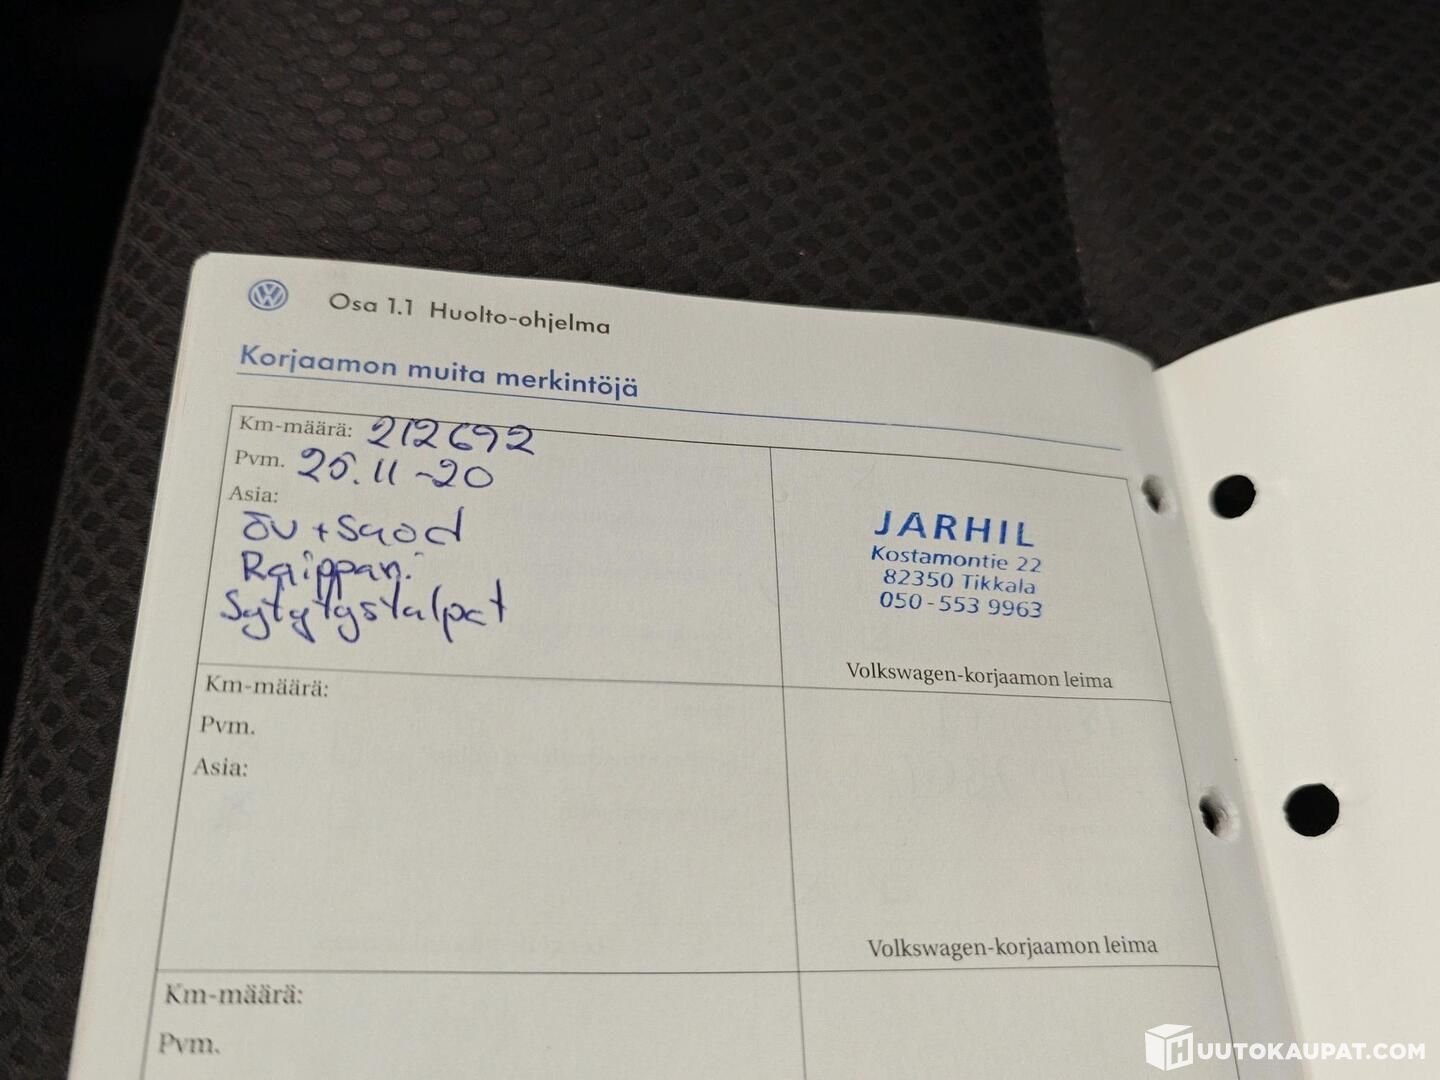 Osa 1.1 Huolto-ohjelma
Korjaamon muita merkintöjä
Km-määrä: 212692
Pvm. 25.11-20
Asia:
öv + suod
Raippan.
Sytytystulpat
JARHIL
Kostamontie 22
82350 Tikkala
050-553 9963
Volkswagen-korjaamon leima
Km-määrä:
Pvm.
Asia:
Volkswagen-korjaamon leima
Km-määrä:
Pvm.
HUUTOKAUPAT.COM